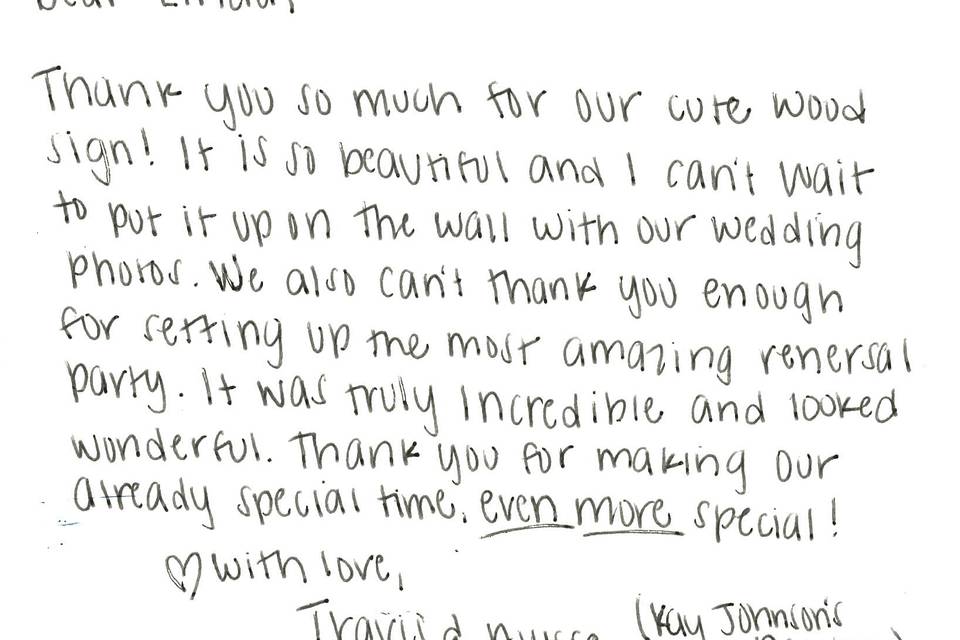 Dear
Thank you so much for our cute wood
sign! It is so beautiful and I can't wait
to put it up on the wall with our wedding
photos. We also can't thank you enough
for setting up the most amazing rehersal
party. It was truly incredible and looked
wonderful. Thank you for making our
already special time, even more special!
♡ with love,
(Kay Johnson's